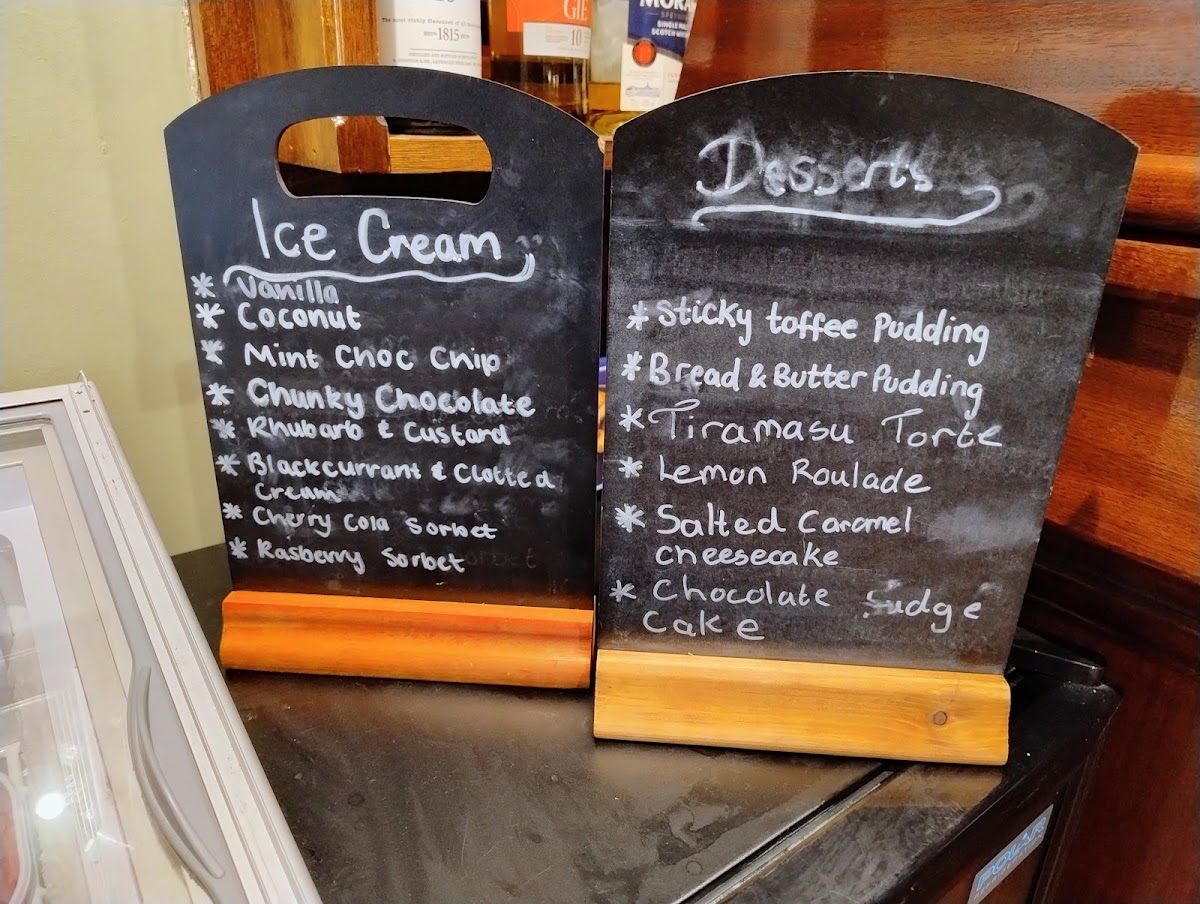 1815
GIE
10
MORA
SINGLE MALT
SCOTCH WHISKY
Ice Cream
* Vanilla
* Coconut
* Mint Choc Chip
* Chunky Chocolate
* Rhubarb & Custard
* Blackcurrant & Clotted
Cream
* Cherry Cola Sorbet
* Rasberry Sorbet
Desserts
* Sticky toffee Pudding
* Bread & Butter Pudding
* Tiramasu Torte
* Lemon Roulade
* Salted Caramel
cheesecake
* Chocolate Fudge
Cake
POLAR